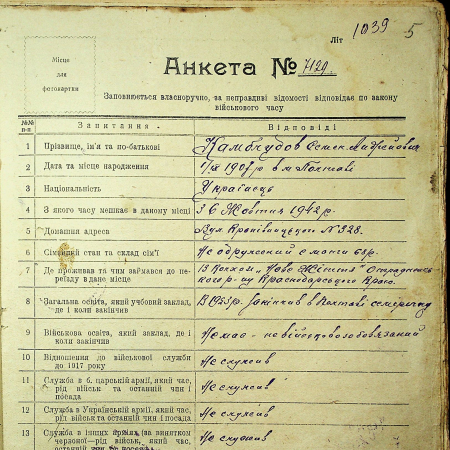 Літ
1039
5
Місце
для
фотокартки
Анкета № 7129.
Заповнюється власноручно, за неправдиві відомості відповідає по закону
військового часу
№№ п-п Запитання Відповіді
1 Прізвище, ім'я та по-батькові Семен Андрійович
2 Дата та місце народження 1907 р в м Полтаві
3 Національність Українець
4 З якого часу мешкає в даному місці З 6 Жовтня 1942 р.
5 Домашня адреса Вул № 328.
6 Сімейний стан та склад сім'ї Не одружений є мати 68 р.
7 Де проживав та чим займався до пе-
реїзду в дане місце
В Колхоз "Нове Життя"
р-ну Краснодарського Краю.
8 Загальна освіта, який учбовий заклад,
де і коли закінчив
В р. Закінчив в Полтаві семирічку
9 Військова освіта, який заклад, де і
коли закінчив
Немає - не військовозобов'язаний
10 Відношення до військової служби
до 1917 року
Не служив
11 Служба в б. царській армії, який час,
рід військ та останній чин і
посада
Не служив
12 Служба в Українській армії, який час,
рід військ та останній чин і посада
Не служив
13 Служба в інших арміях (за винятком
червоної—рід військ, який час,
останній чин та посада
Не служив